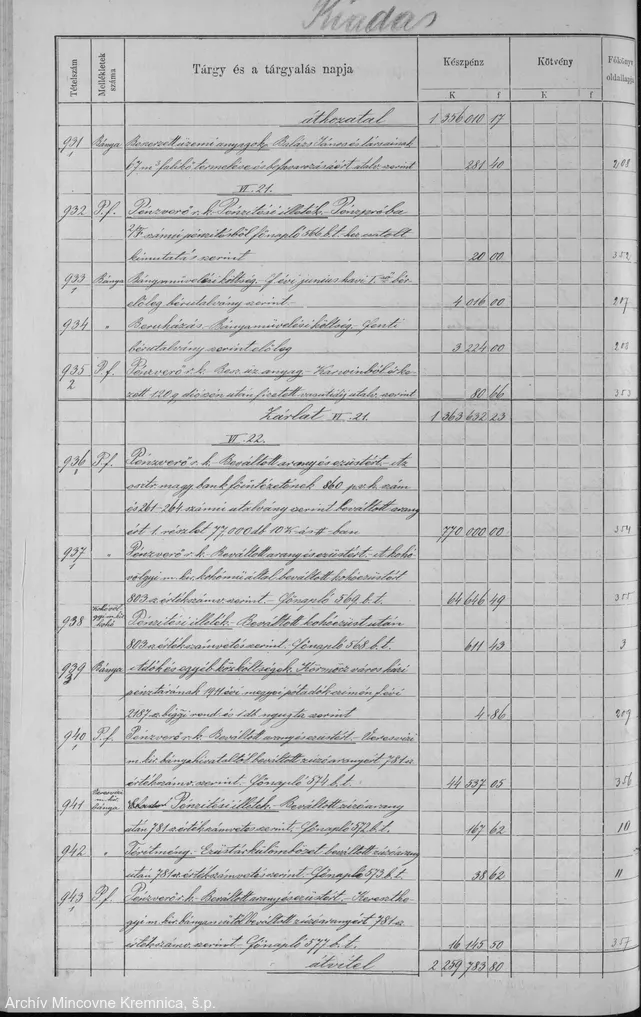 Kiadás
Tételszám
Mellékletek száma
Tárgy és a tárgyalás napja
Készpénz
Kötvény
Főkönyv oldallapja
K f K f
áthozatal 1 356 010 17
931 Bánya Beszerzett üzemi anyagok. Balázs János és társainak
67 m³ faliké termelése és kifuvarozásáért utalv. szerint 281 40 208
VI. 21.
932 P.f. Pénzverő r. k. Pénzítési illeték. Pénzpróba
számú pénzítésből főnapló 566 b.t. bevallott
kimutatás szerint 20 00 352
933 Bánya Bányaművelési költség. f. évi junius havi I. bér-
előleg bérutalvány szerint 4 016 00 207
934 " Beruházás. Bányaművelési költség. fenti
bérutalvány szerint előleg 3 224 00 208
935 P.f. Pénzverő r. k. Besz. üz. anyag.
2 után fizetett utalv. szerint 80 66 353
Zárlat VI. 21. 1 363 632 23
VI. 22.
936 P.f. Pénzverő r. k. Beváltott arany és ezüstért. Az
osztr. magy. bank főintézetének 860 szám
és 261-264 számú utalvány szerint beváltott arany
ért 1. részlet 77,000 db 10 K-ás ban 770 000 00 354
937 " Pénzverő r. k. Beváltott arany és ezüstért. A kohó
völgyi m. kir. kohómű által beváltott kohóezüstért
803 sz. értékszámv. szerint. Főnapló 569 b.t. 64 646 49 355
938 Pénzítési illeték. Beváltott kohóezüst után
803 sz. értékszámvetés szerint. Főnapló 568 b.t. 611 43 3
939 Bánya Adók és egyéb közköltségek. Körmöcz város házi
3 pénztárának 1911 évi megyei pótadók czimén félévi
2187 sz. rend. és 1 db nyugta szerint 4 86 219
940 P.f. Pénzverő r. k. Beváltott arany és ezüstért. Veresvizi
m. kir. bányahivataltól beváltott zúzóaranyért 781 sz.
értékszámv. szerint. Főnapló 574 b.t. 44 537 05 356
941 Veresvizi m. kir. bánya Pénzítési illeték. Beváltott zúzóarany
után 781 sz. értékszámvetés szerint. Főnapló 572 b.t. 167 62 10
942 " Térítmény. Ezüstárkülömbözet beváltott zúzóarany
után 781 sz. értékszámvetés szerint. Főnapló 573 b.t. 38 62 11
943 P.f. Pénzverő r. k. Beváltott arany és ezüstért. Kereszthe-
gyi m. kir. bányam. től beváltott zúzóaranyért 781 sz.
értékszámv. szerint. Főnapló 577 b.t. 16 145 50 357
átvitel 2 259 783 80
Archív Mincovne Kremnica, š.p.